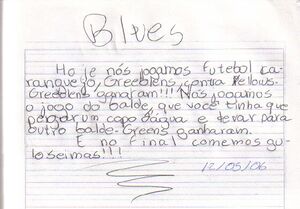 Blues
Hoje nós jogamos futebol ca-
ranguejo, Greeblens contra Yellows.
Greeblens ganaram!!! Nós jogamos
o jogo do balde, que você tinha que
pegar um copo d'água e levar para
outro balde-Greens ganharam.
E no final comemos gu-
loseimas!!!
12/05/06